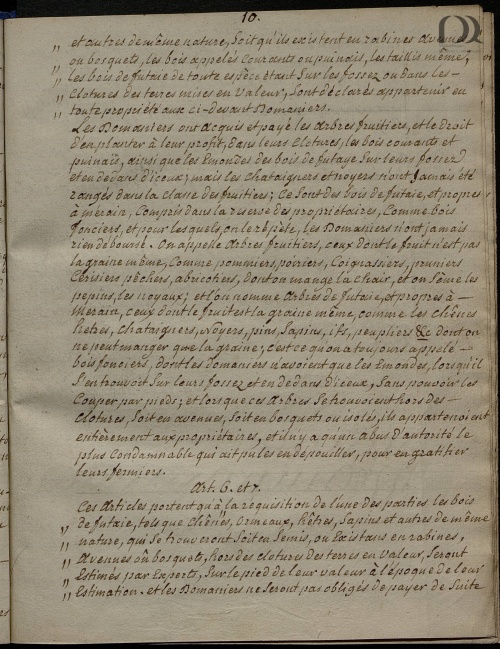 10.
„ et autres de même nature, soit qu'ils existent en rabines Avenues
„ ou bosquets, les bois appelés courants ou puinais, les taillis même,
„ les bois de futaie de toute espèce étant Sur les fossez ou dans les –
„ Clotures des terres mises en Valeur, sont déclarés appartenir en
„ toute propriété aux ci-devant Domaniers.
Les Domaniers ont acquis et payé les Arbres fruitiers, et le Droit
d'en planter à leur profit, Dans leurs Clotures, les bois courants et
puinais, ainsi que les Emondes des bois de futaye Sur leurs fossez
et en dedans d'iceux; mais les chataigners et noyers n'ont Jamais été
rangés dans la classe des fruitiers; Ce sont des bois de futaie, et propres
à merain, compris dans la reserve des propriétaires, Comme bois
fonciers, et pour lesquels, on le répète, les Domaniers n'ont jamais
rien deboursé. On appelle Arbres fruitiers, ceux dont le fruit n'est pas
la graine même, Comme pommiers, poiriers, Coignassiers, pruniers
Cerisiers pêchers, abricotiers, dont on mange la chair, et on sême les
pepins, les noyaux; et l'on nomme Arbres de futaie, et propres à –
Merain, ceux dont le fruit est la graine même, comme les chênes
hetres, chataigners, Noyers, pins, Sapins, ifs, peupliers &c dont on
ne peut manger que la graine; c'est ce qu'on a toujours appelé –
bois fonciers, dont les Domaniers n'avoient que les Emondes, lorsqu'il
s'en trouvoit Sur leurs fossez et en dedans d'iceux, Sans pouvoir les
Couper par pieds; et lorsque ces Arbres se trouvoient hors des –
Clotures, Soit en avenues, Soit en bosquets ou isolés, ils appartenoient
entièrement aux propriétaires, et il n'y a qu'un abus D'autorité le
plus Condamnable qui ait pu les en dépouiller, pour en gratifier
leurs fermiers.
Art. 6. et 7.
Ces Articles portent qu'à la réquisition de l'une des parties les bois
„ de futaie, tels que Chênes, Ormeaux, hêtres, Sapins et autres de même
„ nature, qui Se trouveront Soit en Semis, ou Existans en rabines,
„ Avenues ou bosquets, hors des clotures des terres en Valeur, seront
„ Estimés par Experts, Sur le pied de leur valeur à l'époque de leur
„ Estimation. et les Domaniers ne seront pas obligés de payer de Suite